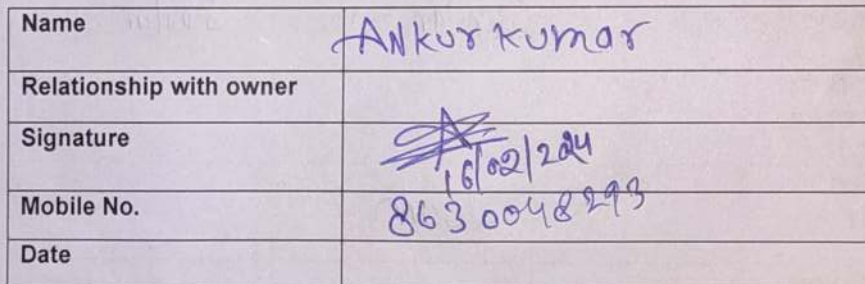 Name ANkur kumar
Relationship with owner
Signature
16/02/2024
Mobile No. 8630048293
Date